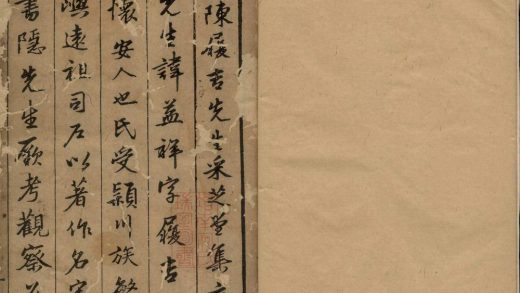 陳履吉先生采芝堂集
先生諱益祥字履吉
懷安人也氏受潁川族
嶼遠祖司左以著作名
書隱先生厥考觀察